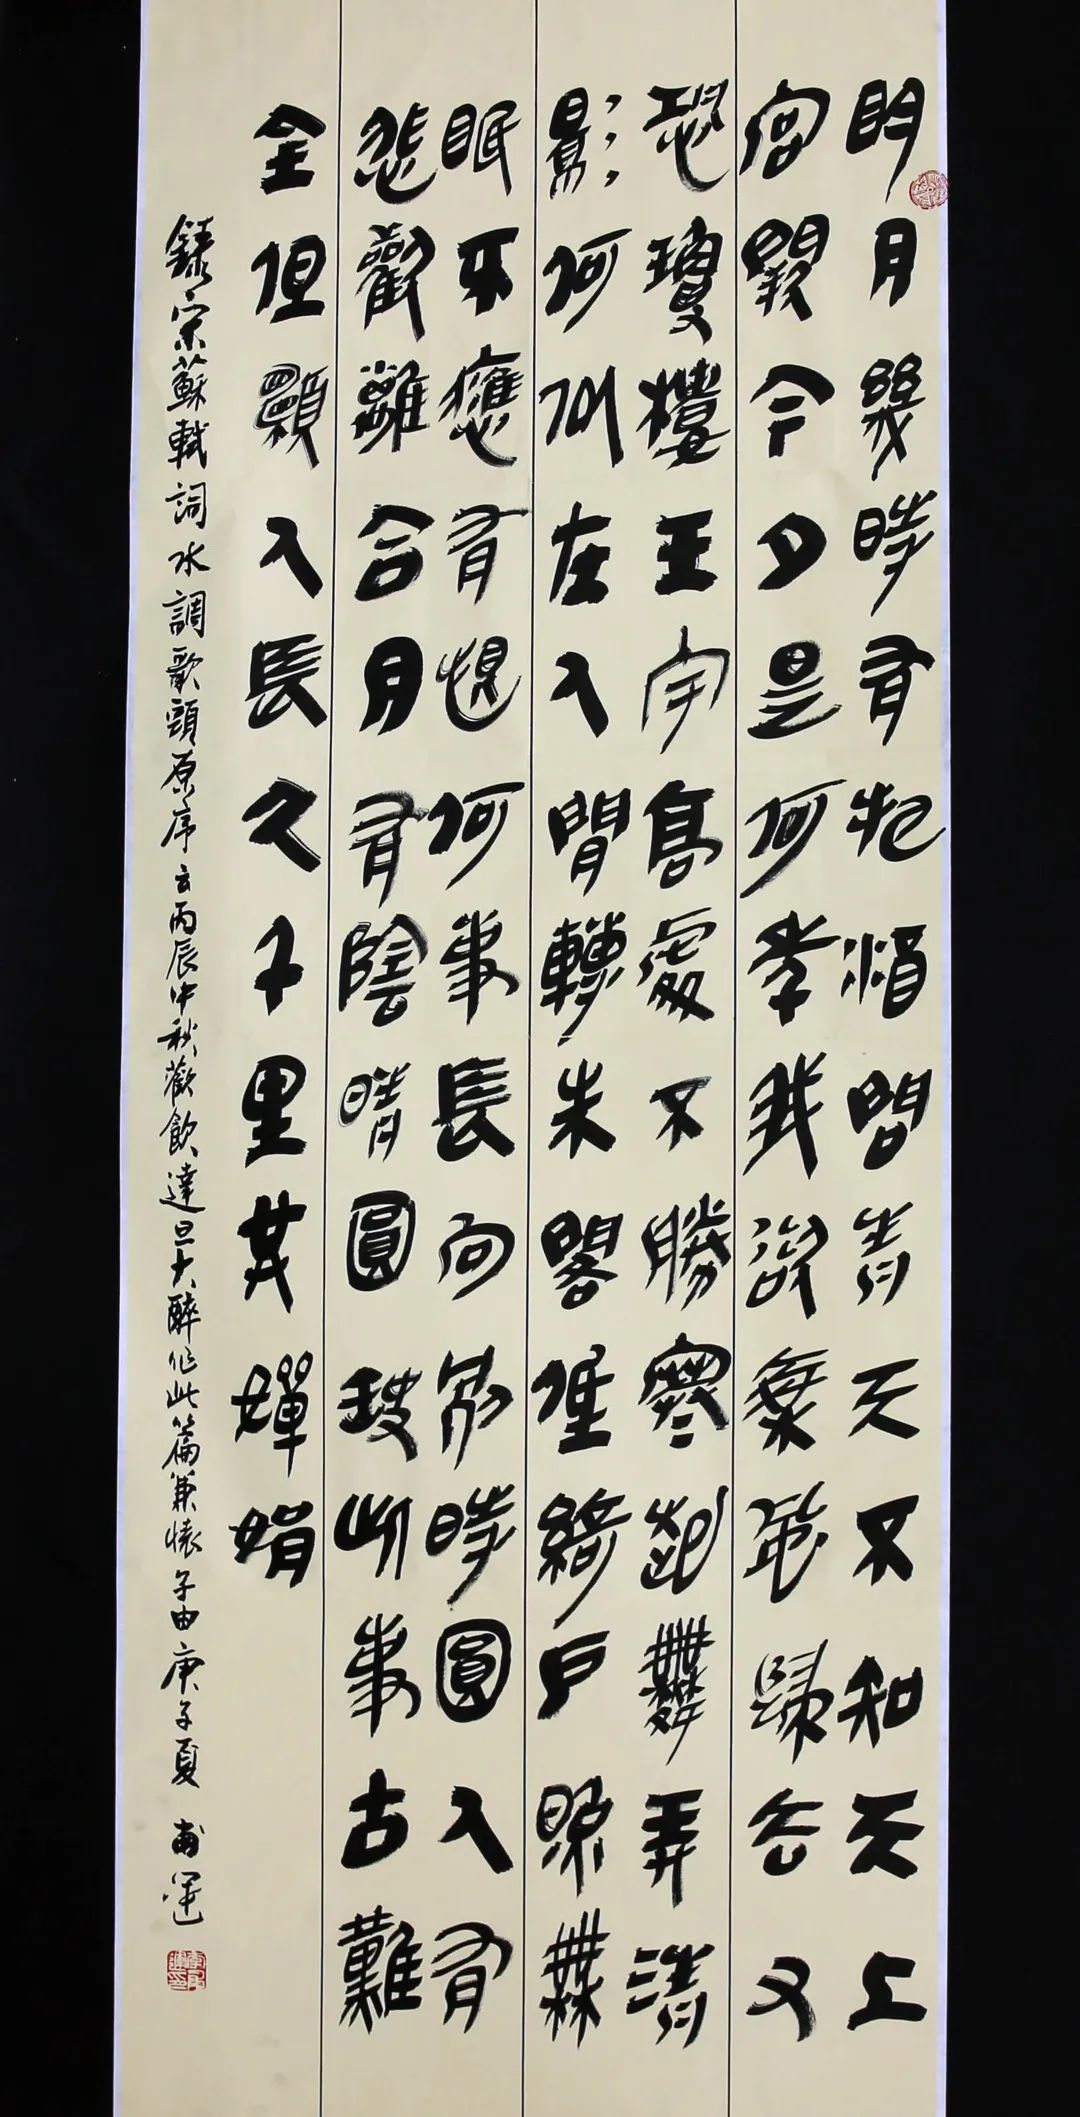 明月幾時有把酒問青天不知天上
宮闕今夕是何年我欲乘風歸去又
恐瓊樓玉宇高處不勝寒起舞弄清
影何似在人間轉朱閣低綺戶照無
眠不應有恨何事長向別時圓人有
悲歡離合月有陰晴圓缺此事古難
全但願人長久千里共嬋娟
錄宋蘇軾詞水調歌頭原序云丙辰中秋歡飲達旦大醉作此篇兼懷子由庚子夏 甫運